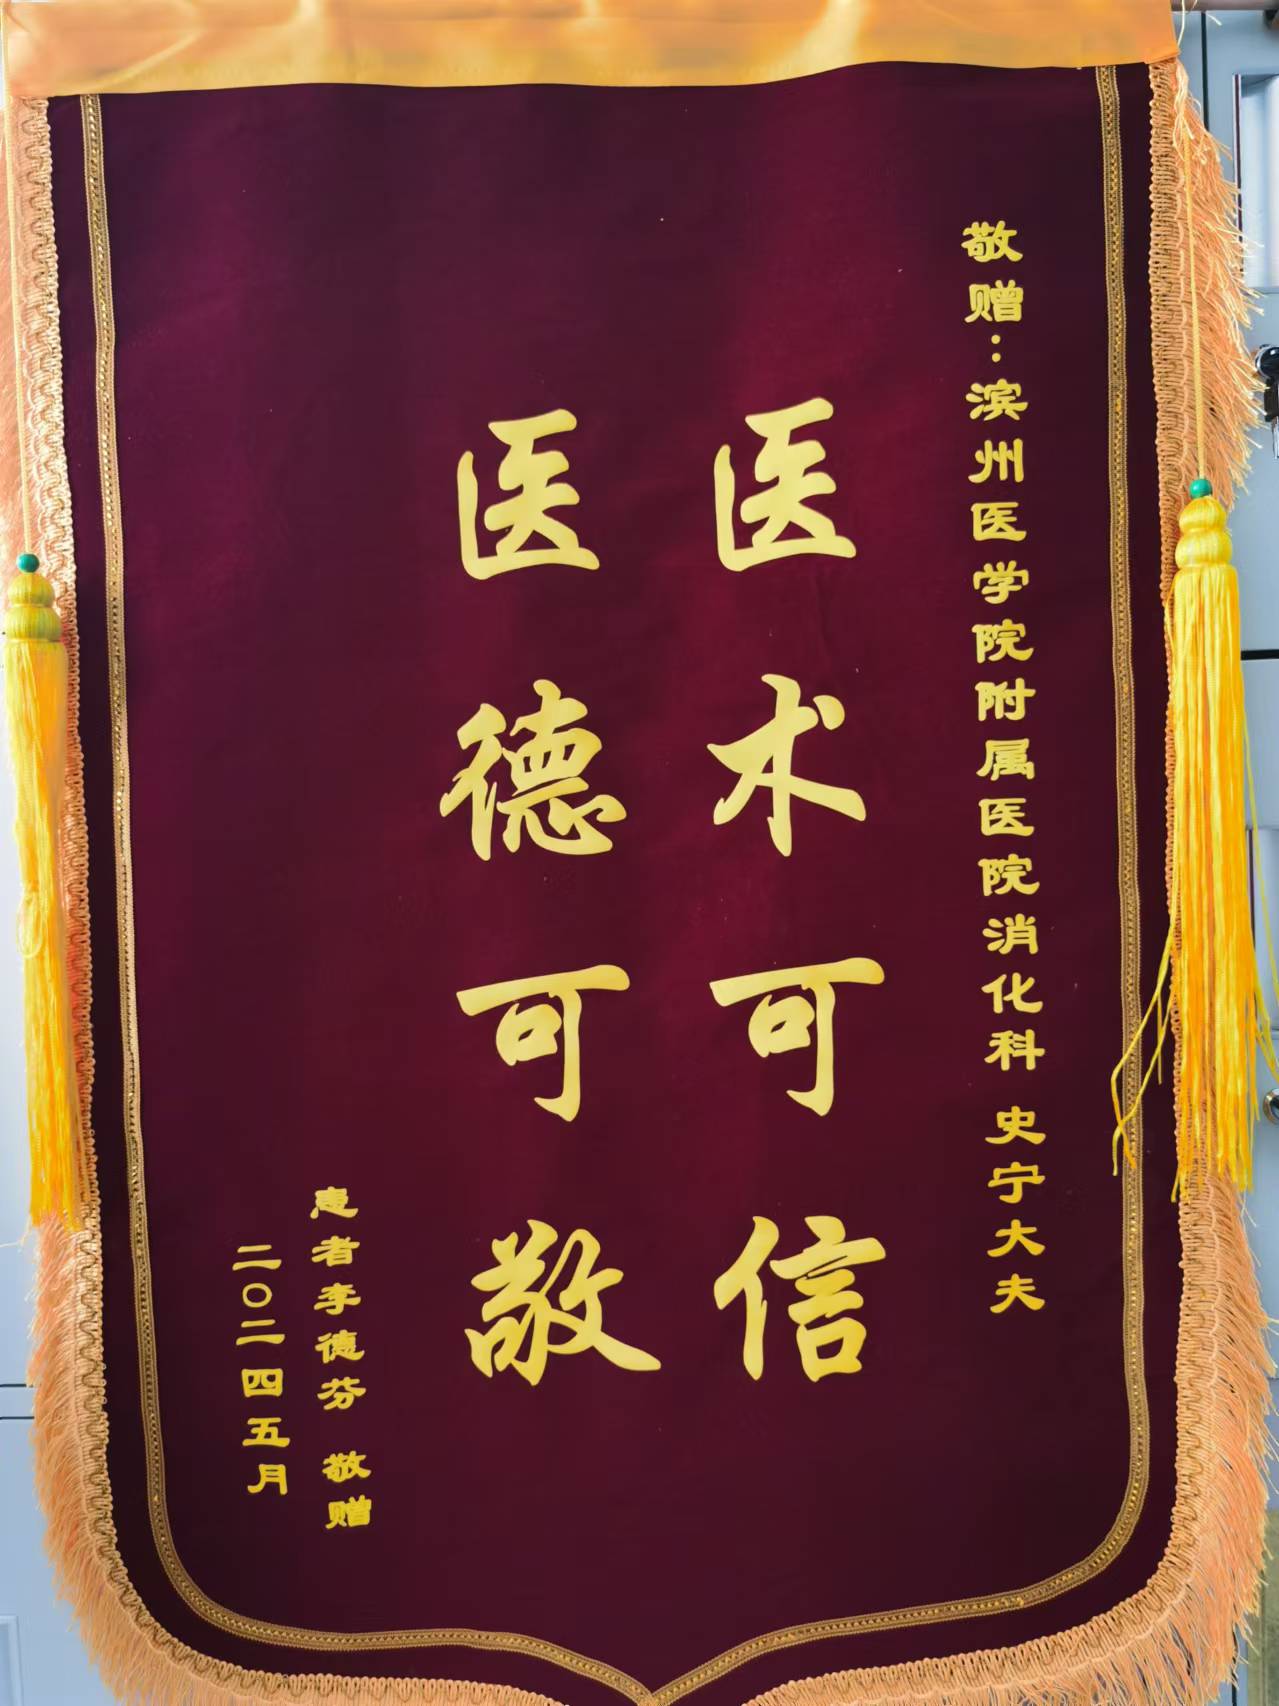 敬赠：滨州医学院附属医院消化科 史宁大夫
医术可信
医德可敬
患者李德芬 敬赠
二〇二四五月